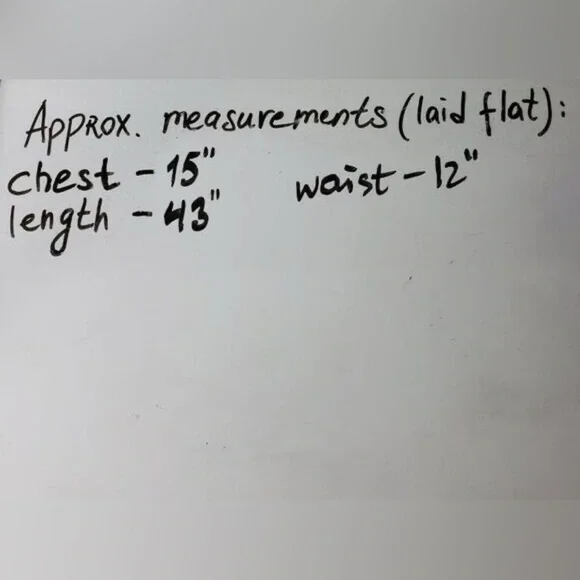 Approx. measurements (laid flat):
chest - 15" waist - 12"
length - 43"